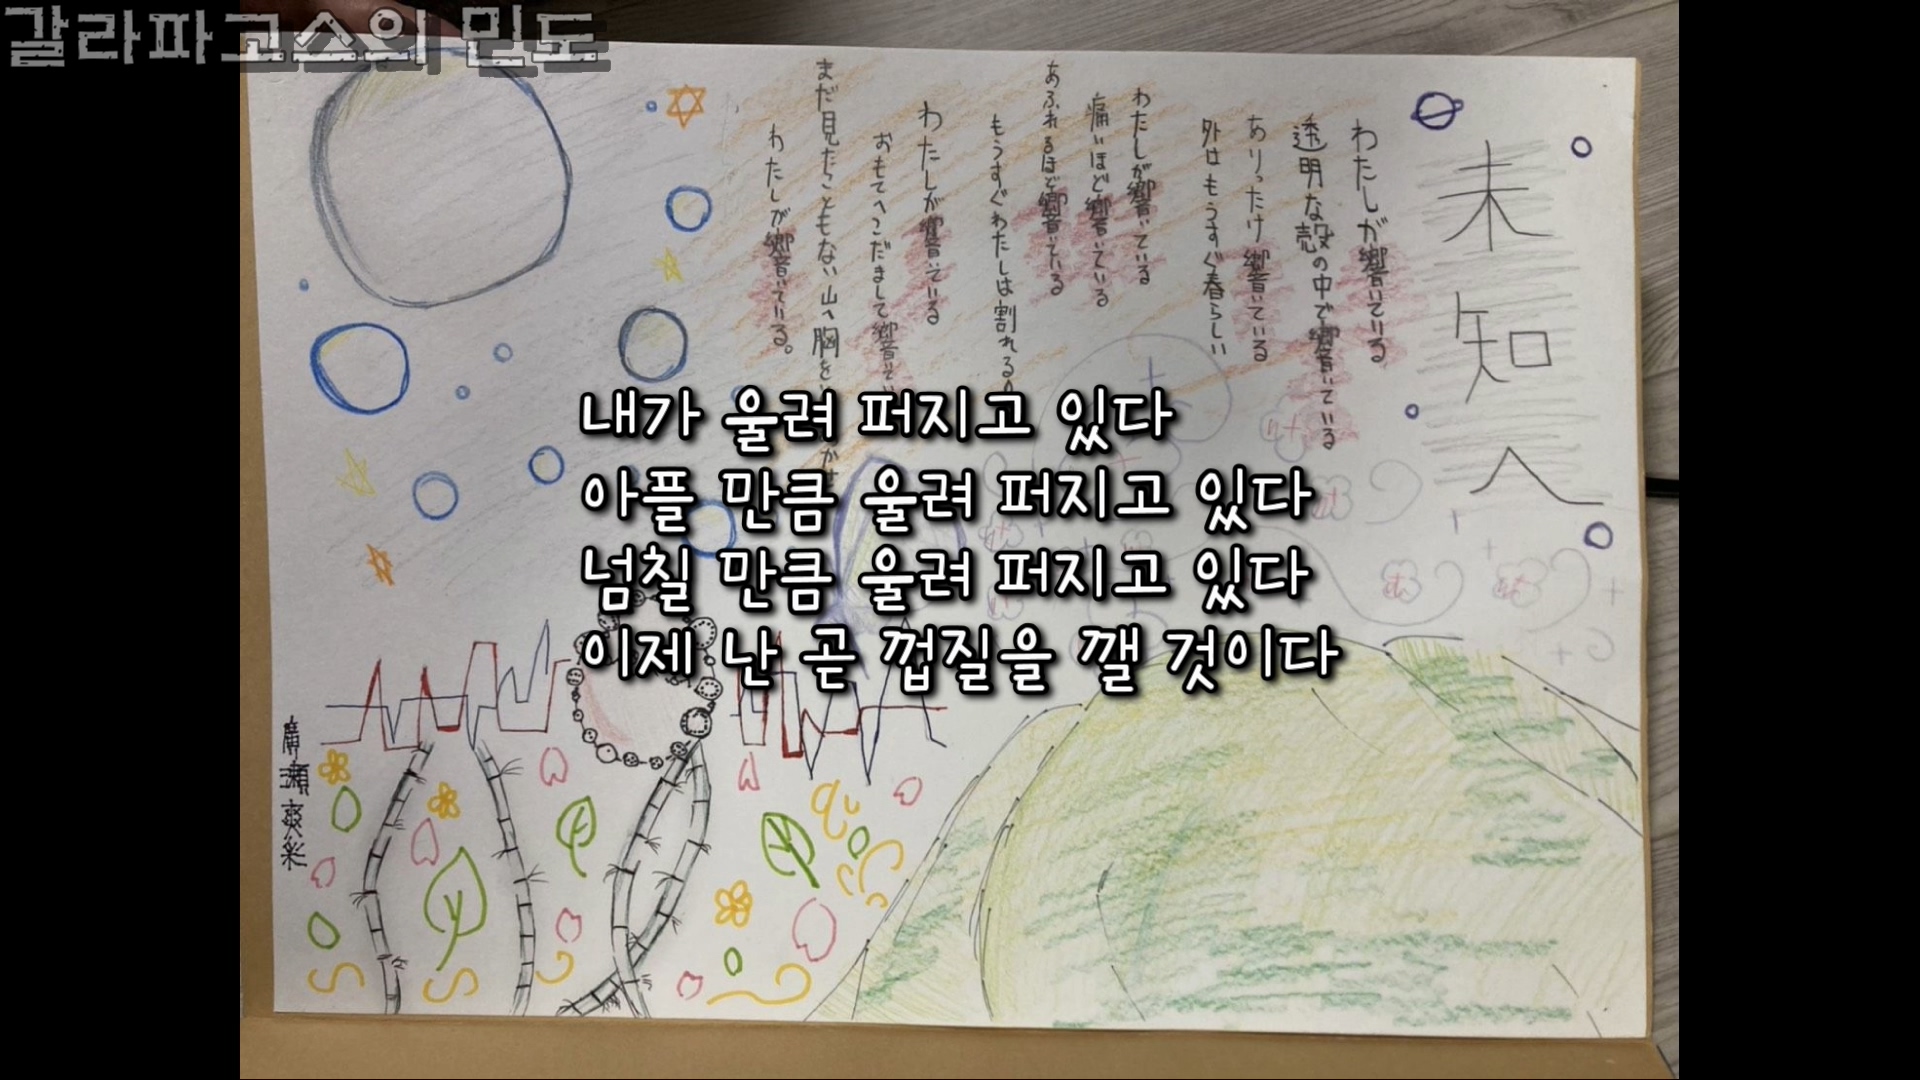 갈라파고스의 민도
未知へ
わたしが響いている
透明な殻の中で響いている
ありったけ響いている
外はもうすぐ春らしい
わたしが響いている
痛いほど響いている
あふれるほど響いている
もうすぐわたしは割れる
わたしが響いている
おもてへこだまして響いてい
まだ見たこともない山へ胸を
わたしが響いている。
내가 울려 퍼지고 있다
아플 만큼 울려 퍼지고 있다
넘칠 만큼 울려 퍼지고 있다
이제 난 곧 껍질을 깰 것이다
廣瀬爽彩